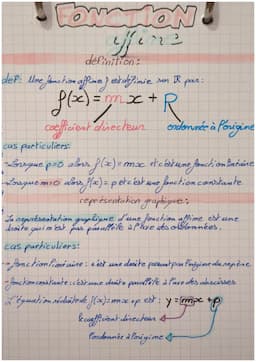 FONCTION
affine
définition:
def: Une fonction affine f est définie sur IR par:
f(x) = mx + P
coefficient directeur ordonnée à l'origine
cas particuliers:
- Lorsque p=0 alors f(x) = mx et c'est une fonction linéaire
- Lorsque m=0 alors f(x) = p et c'est une fonction constante.
représentation graphique:
La représentation graphique d'une fonction affine est une
droite qui n'est pas parallèle à l'axe des ordonnées.
cas particuliers:
- fonction linéaire: c'est une droite passant par l'origine du repère.
- fonction constante: c'est une droite parallèle à l'axe des abscisses.
L'équation réduite de f(x)=mx+p est: y = mx + p
le coefficient directeur
l'ordonnée à l'origine